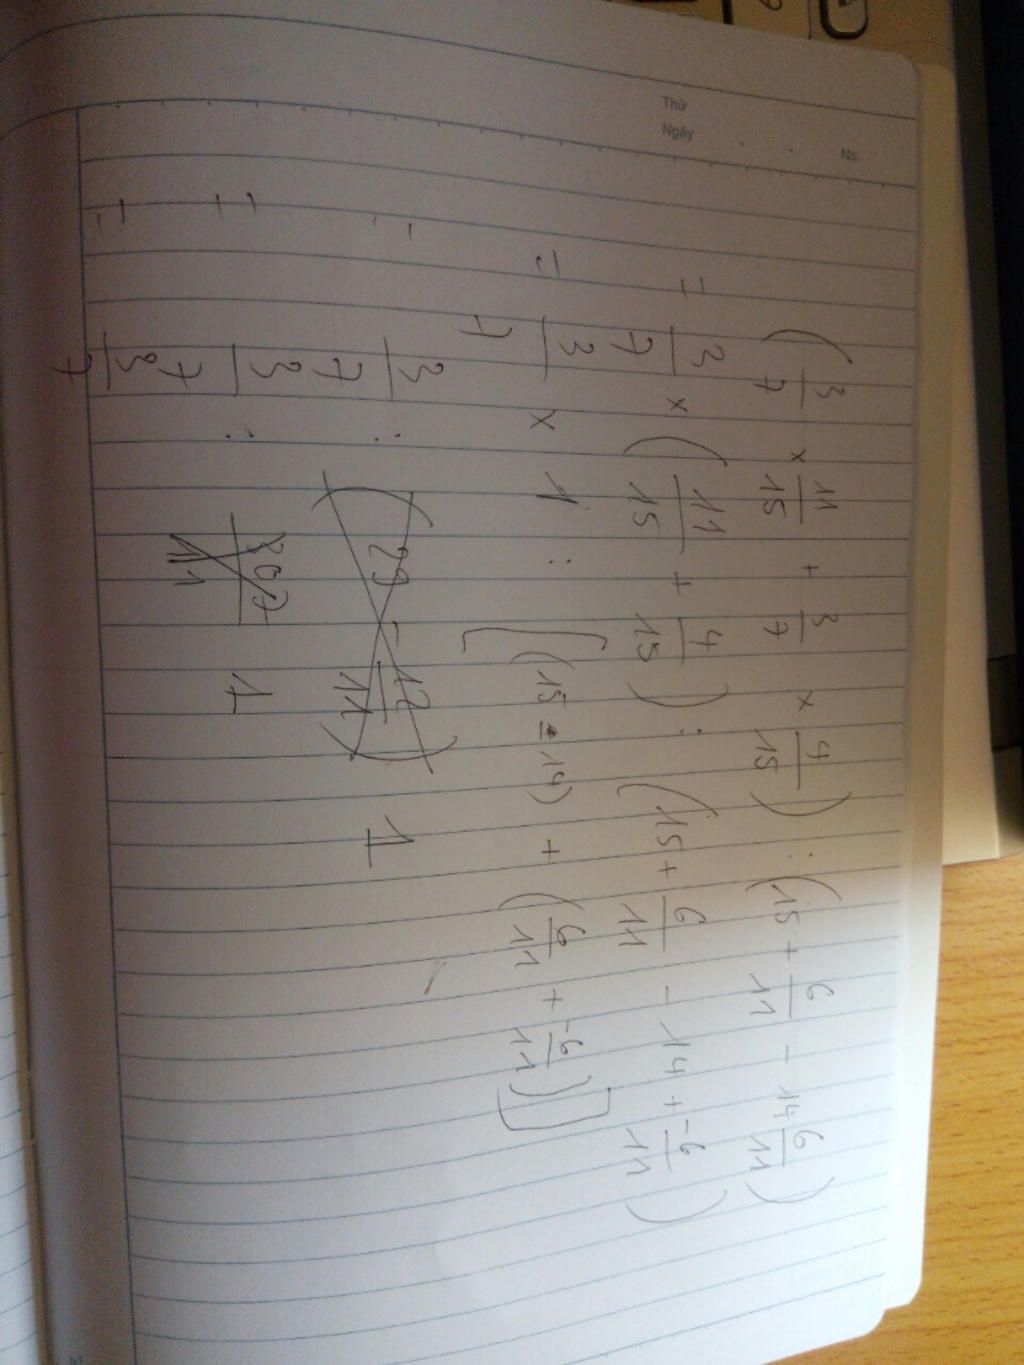 Thứ
Ngày
No.
( 3/7 × 11/15 + 3/7 × 4/15 ) : ( 15 + 6/11 - 14 6/11 )
= 3/7 × ( 11/15 + 4/15 ) : ( 15 + 6/11 - 14 + -6/11 )
= 3/7 × 1 : [ ( 15 - 14 ) + ( 6/11 + -6/11 ) ]
= 3/7 : ( 29 - 12/11 ) 1
= 3/7 : 307/11 1
= 3/7